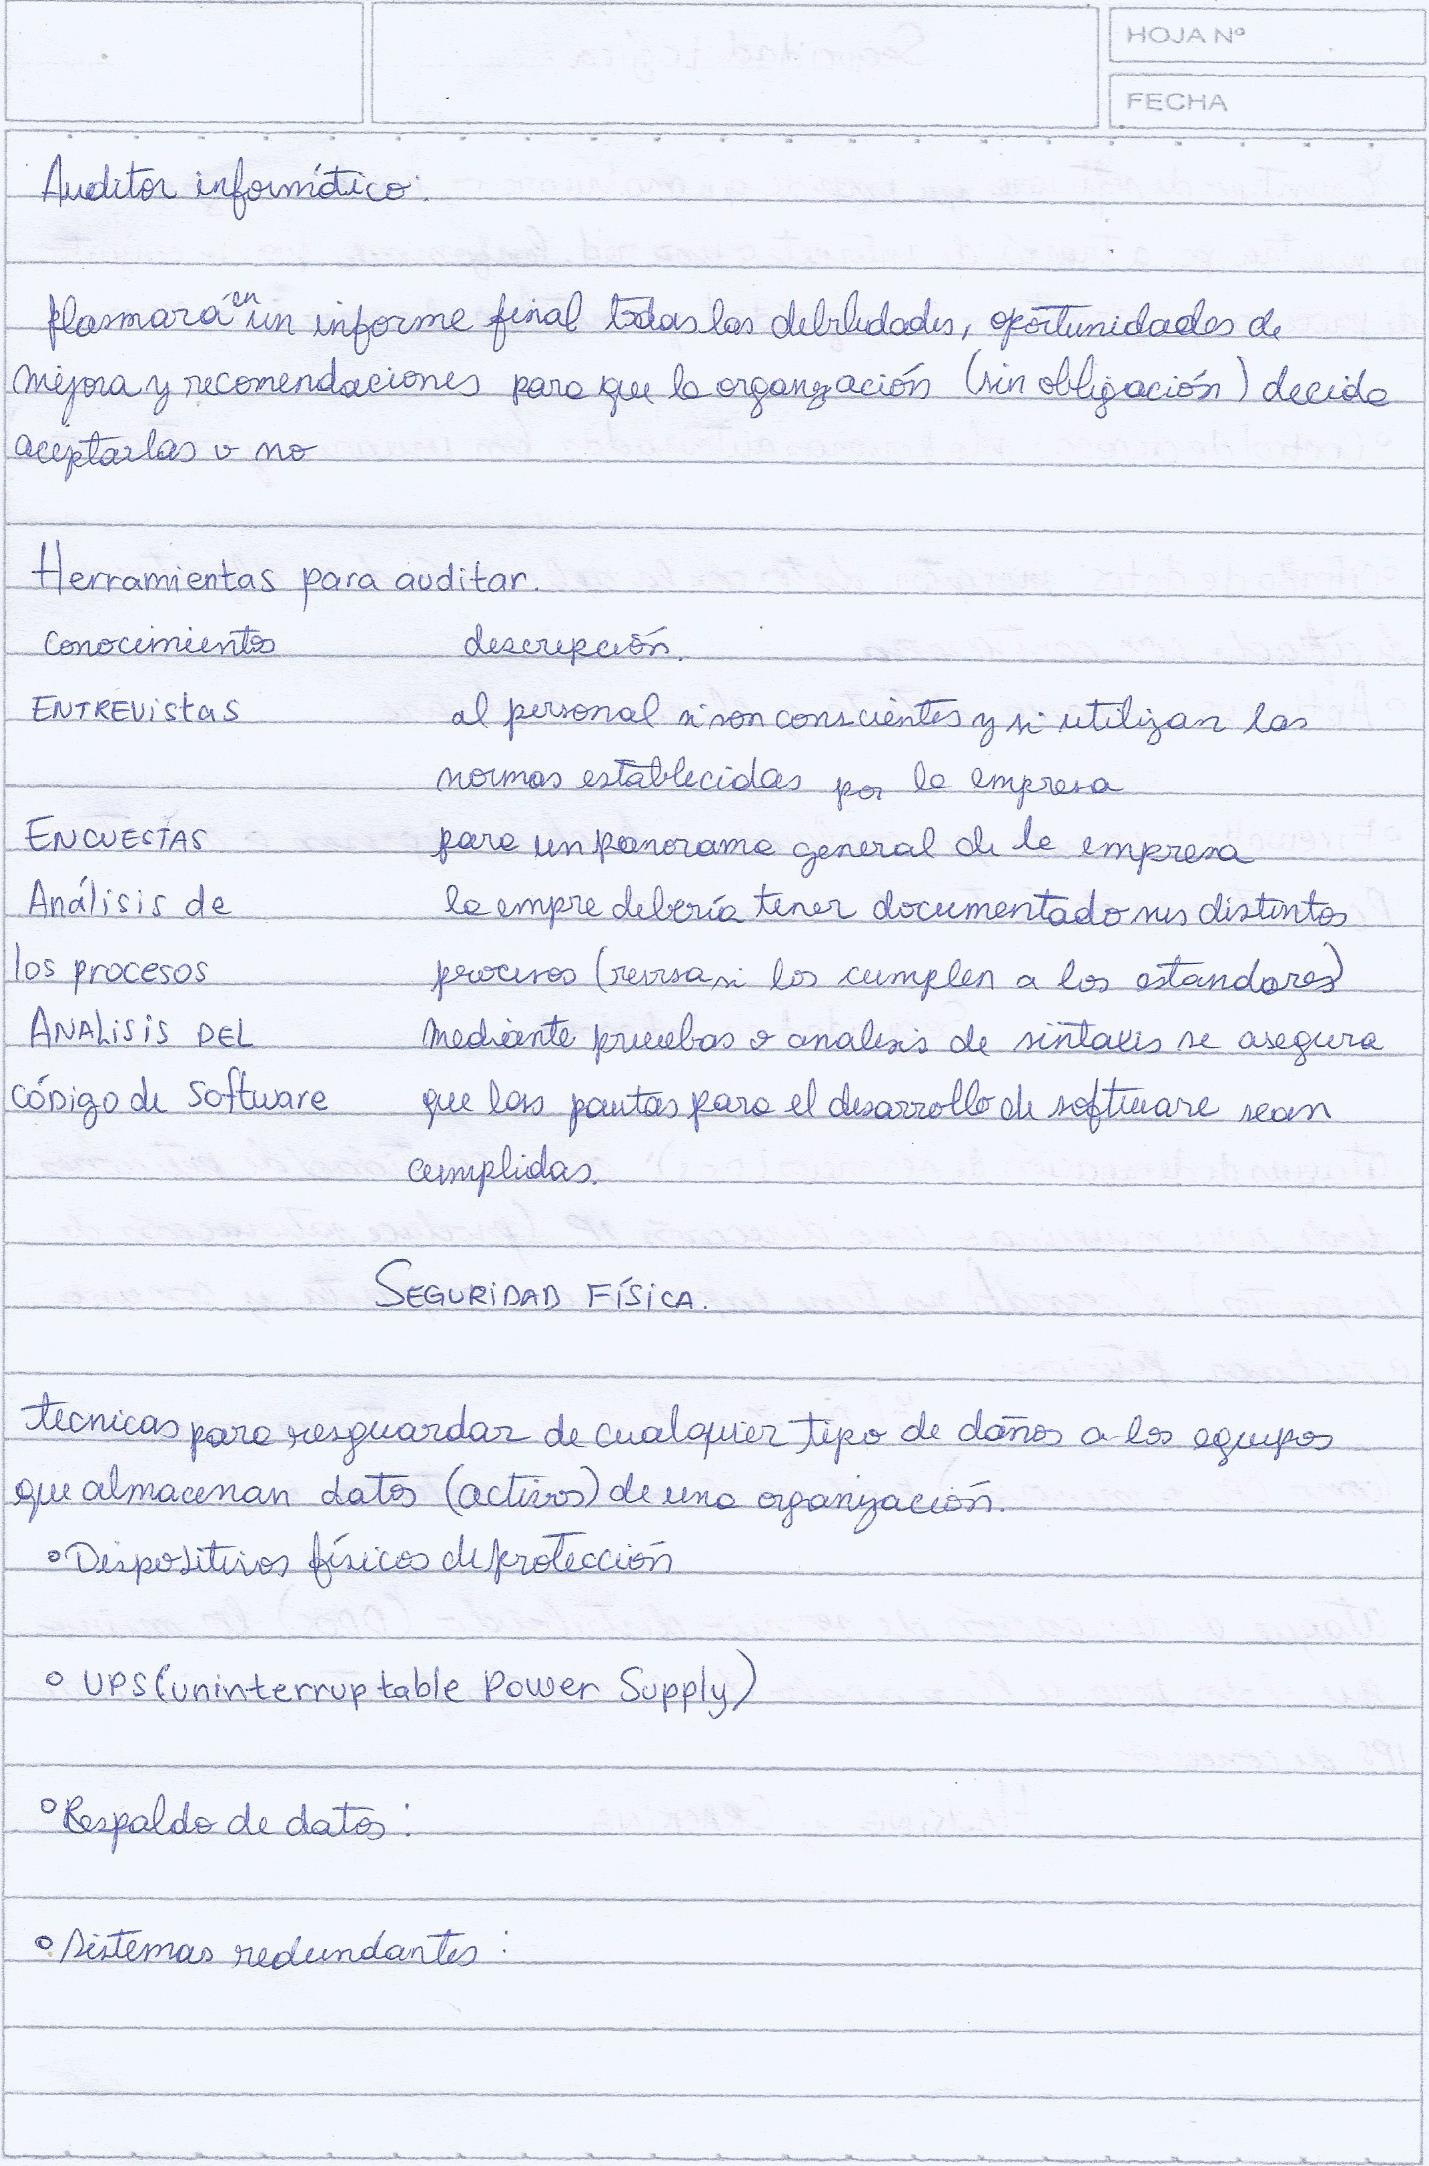 HOJA Nº
FECHA
Auditor informático:
Plasmará en un informe final todas las debilidades, oportunidades de
mejora y recomendaciones para que la organización (sin obligación) decida
aceptarlas o no
Herramientas para auditar.
Conocimientos descripción.
ENTREVistas al personal si son conscientes y si utilizan las
normas establecidas por la empresa
ENCUESTAS para un panorama general de la empresa
Análisis de la empre debería tener documentado sus distintos
los procesos procesos (revisa si los cumplen a los estandares)
ANALISIS DEL mediante pruebas o analisis de sintaxis se asegura
código de Software que las pautas para el desarrollo de software sean
cumplidas.
SEGURIDAD FÍSICA.
tecnicas para resguardar de cualquier tipo de daños a los equipos
que almacenan datos (activos) de una organización.
° Dispositivos físicos de protección
° UPS (uninterruptable Power Supply)
° Respaldo de datos:
° Sistemas redundantes: